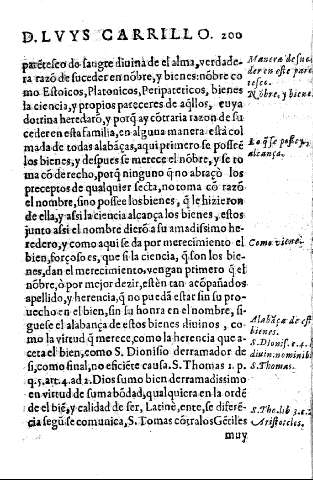 D. LVYS CARRILLO. 200
parẽtesco de sangre diuina de el alma, verdade-
ra razõ de suceder en nõbre, y bienes: nõbre co
mo Estoicos, Platonicos, Peripateticos, bienes
la ciencia, y propios pareceres de aq̃llos, cuya
dotrina heredarõ, y porq̃ ay cõtraria razon de su
cederen esta familia, en alguna manera està col
mada de todas alabãças, aqui primero se posseẽ
los bienes, y despues se merece el nõbre, y se to
ma cõ derecho, porq̃ ninguno q̃ no abraçò los
preceptos de qualquier secta, no toma cõ razõ
el nombre, sino possee los bienes, q̃ le hizieron
de ella, y assi la ciencia alcança los bienes, estos
junto assi el nombre dierõ a su amadissimo he-
redero, y como aqui se da por merecimiento el
bien, forçoso es, que si la ciencia, q̃ son los bie-
nes, dan el merecimiento, vengan primero q̃ el
nõbre, ò por mejor dezir, estèn tan acõpañados
apellido, y herencia, q̃ no puedã estar sin su pro-
uecho en el bien, sin su honra en el nombre, si-
guese el alabança de estos bienes diuinos, co-
mo la virtud q̃ merece, como la herencia que a-
ceta el bien, como S. Dionisio derramador de
si, como final, no eficiẽte causa. S. Thomas 1. p.
q. 5. art. 4. ad 2. Dios sumo bien derramadissimo
en virtud de suma bõdad, qualquiera en la ordẽ
de el biẽ, y calidad de ser, Latinè, ente, se diferẽ-
cia segũ se comunica, S. Tomas cõtra los Gẽtiles
muy
Manera de suce
der en este paren
tesco.
Nõbre, y bienes
Lo q̃ se possee, y
alcança.
Como viene
Alabãça de est
bienes.
S. Dionis. c. 4.
diuin. nominib
S. Thomas.
S. Tho. lib 3. c. 2
Aristoteles.